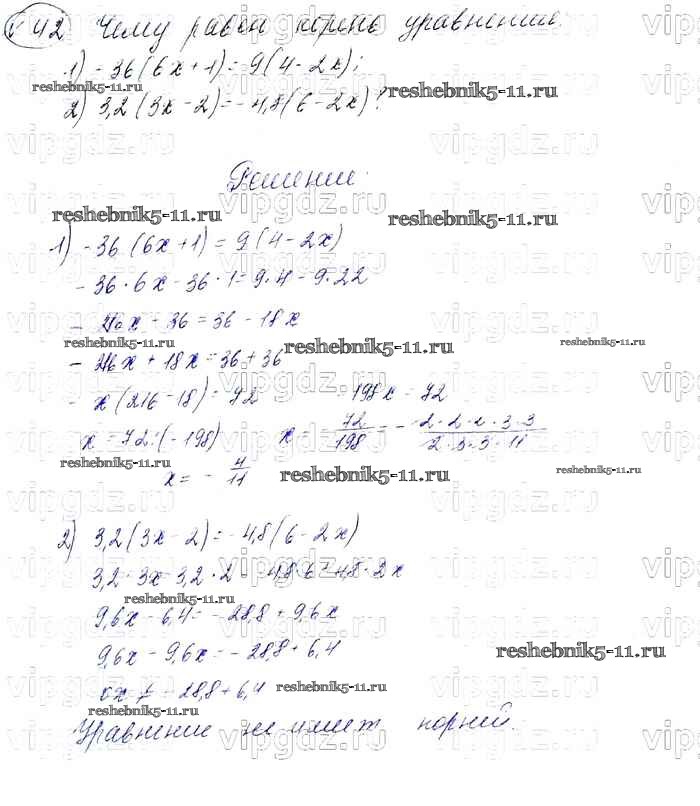 42 Чему равен корень уравнения:
1) -36(6x+1)=9(4-2x);
2) 3,2(3x-2)=-4,8(6-2x)?
Решение:
1) -36(6x+1)=9(4-2x)
-36·6x-36·1=9·4-9·22
- x - 36 = 36 - 18x
- x + 18x = 36 + 36
- x(216-18)=72 -198x = 72
x = 72:(-198) x = -72/198 = - 2·2·2·3·3/2·3·3·11
x = - 4/11
2) 3,2(3x-2)=-4,8(6-2x)
3,2·3x-3,2·2 -4,8·6+4,8·2x
9,6x-6,4=-28,8+9,6x
9,6x-9,6x=-28,8+6,4
0x ≠ -28,8+6,4
Уравнение не имеет корней.
reshebnik5-11.ru
vipgdz.ru